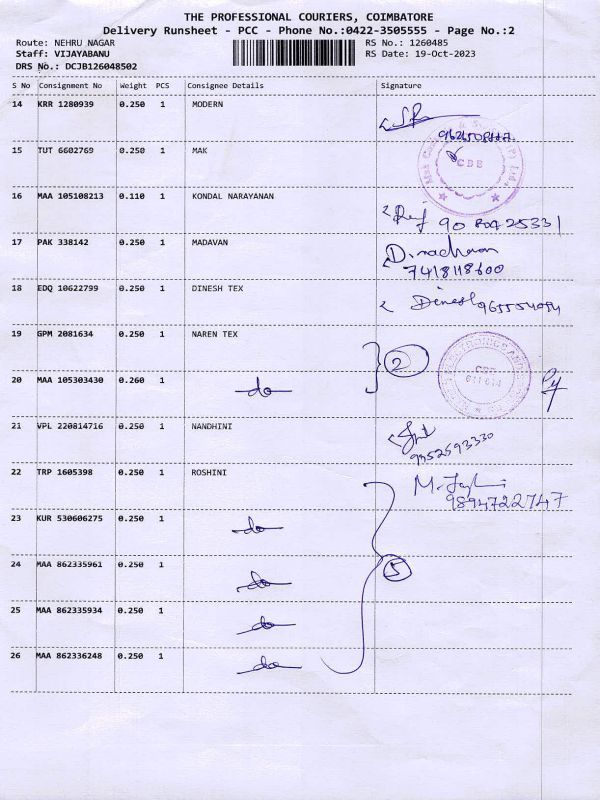 THE PROFESSIONAL COURIERS, COIMBATORE
Delivery Runsheet - PCC - Phone No.:0422-3505555 - Page No.:2
Route: NEHRU NAGAR RS No.: 1260485
Staff: VIJAYABANU RS Date: 19-Oct-2023
DRS No.: DCJB126048502
S No Consignment No Weight PCS Consignee Details Signature
14 KRR 1280939 0.250 1 MODERN
15 TUT 6602769 0.250 1 MAK
CBE
16 MAA 105108213 0.110 1 KONDAL NARAYANAN
17 PAK 338142 0.250 1 MADAVAN
7418118600
18 EDQ 10622799 0.250 1 DINESH TEX
Dinesh
19 GPM 2081634 0.250 1 NAREN TEX
2
CBE
20 MAA 105303430 0.260 1 do
21 VPL 220814716 0.250 1 NANDHINI
9952593330
22 TRP 1605398 0.250 1 ROSHINI
9894722747
23 KUR 530606275 0.250 1 do
24 MAA 862335961 0.250 1 do
5
25 MAA 862335934 0.250 1 do
26 MAA 862336248 0.250 1 do